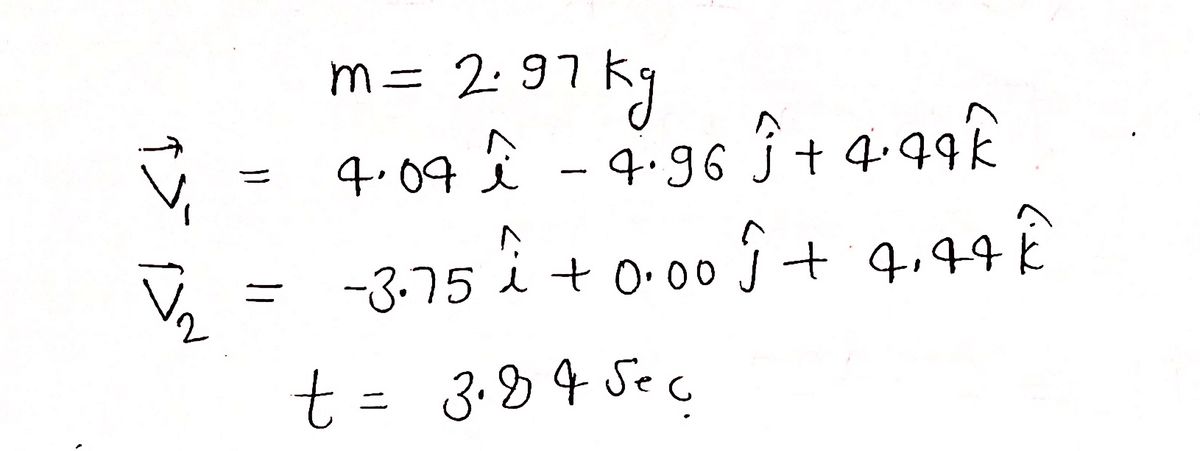 m = 2.97 kg
v⃗₁ = 4.04 î - 4.96 ĵ + 4.44 k̂
v⃗₂ = -3.75 î + 0.00 ĵ + 4.44 k̂
t = 3.84 sec